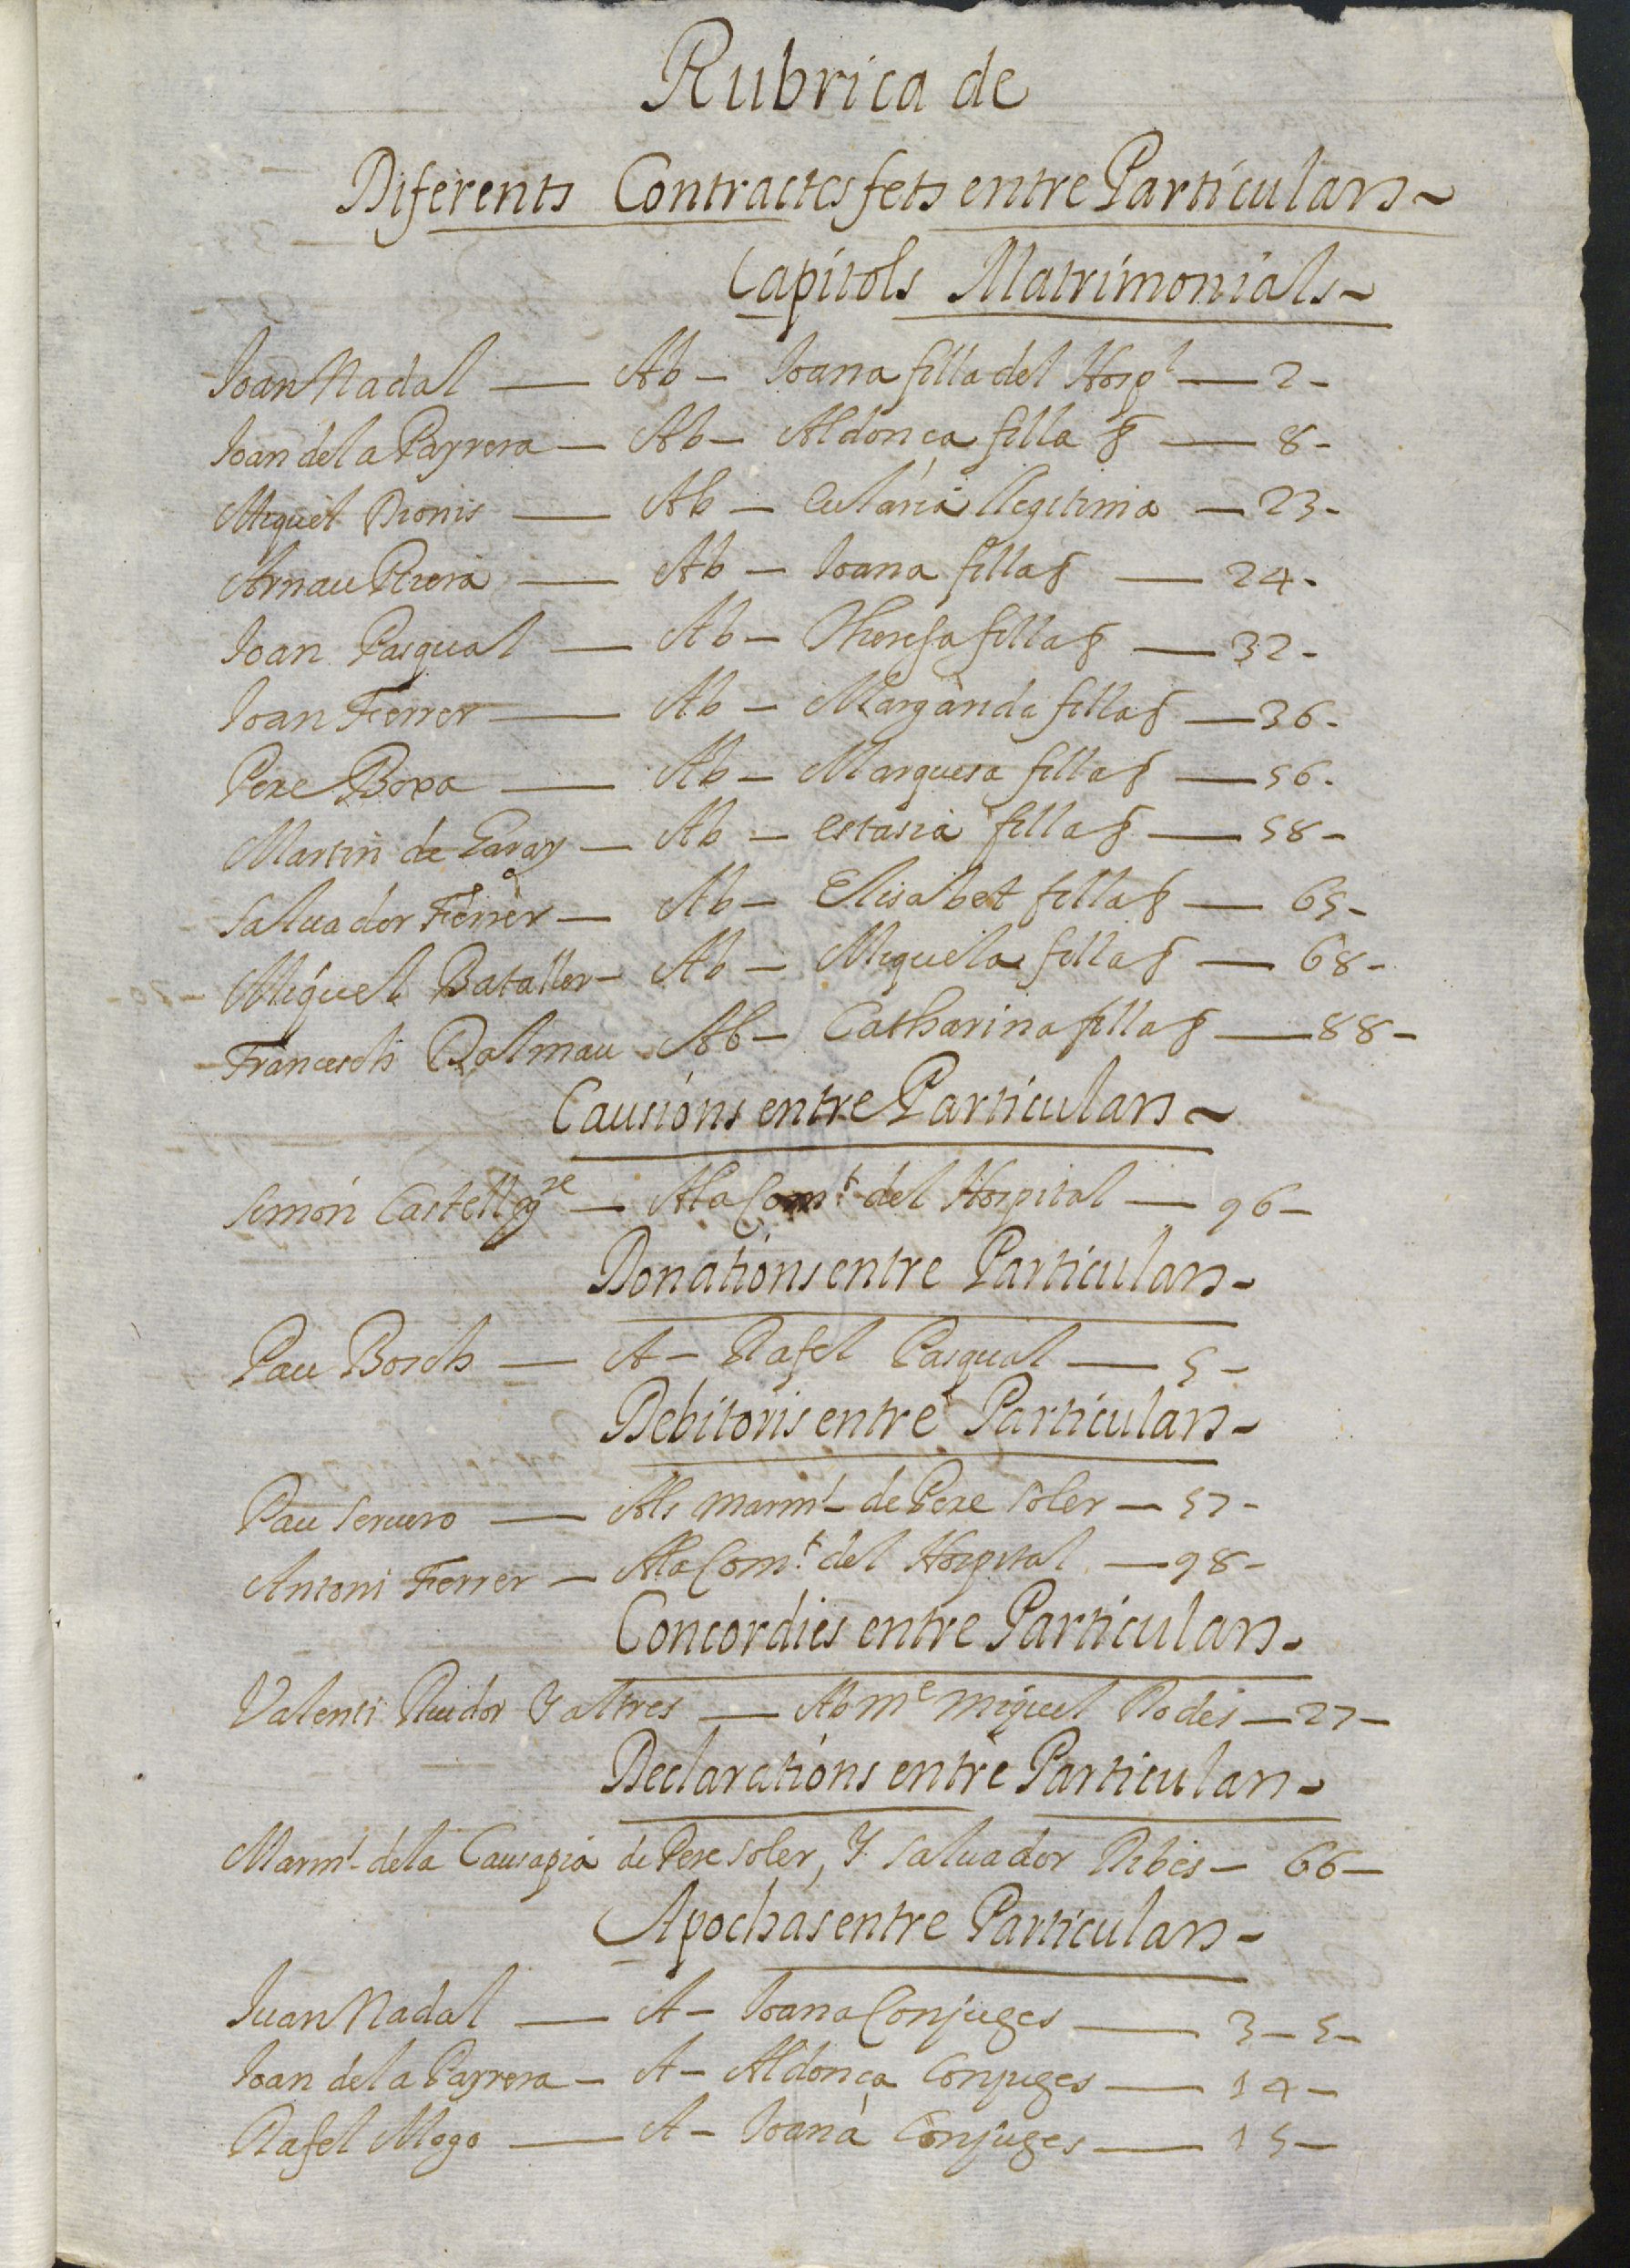 Rubrica de
Diferents Contractes fets entre Particulars ~
Capitols Matrimonials ~
Joan Nadal — Ab — Joana filla del Hospl — 2 -
Joan de la Payrera — Ab — Aldonça filla § — 8 -
Miquel Dionis — Ab — Eularia llegitima — 23 -
Arnau Riera — Ab — Joana filla § — 24 -
Joan Pasqual — Ab — Theresa filla § — 32 -
Joan Ferrer — Ab — Margarida filla § — 36 -
Pere Boxa — Ab — Marquesa filla § — 56 -
Martin de Garay — Ab — estasia filla § — 58 -
Saluador Ferrer — Ab — Elisabet filla § — 65 -
Miquel Bataller — Ab — Miquela filla § — 68 -
Francesch Dalmau Ab — Catharina filla § — 88 -
Causions entre Particulars ~
Simón Castell — A la Comt. del Hospital — 96 -
Donations entre Particulars -
Pau Bosch — A — Rafel Pasqual — 5 -
Debitoris entre Particulars -
Pau Seruero — Als marml de Pere Soler — 57 -
Antoni Ferrer — A la Comt. del Hospital — 98 -
Concordies entre Particulars -
Valenti Ruidor Y altres — Ab me Miquel Rodes — 27 -
Declarations entre Particulars -
Marml de la Causa pia de Pere Soler, Y Saluador Ribes — 66 -
Apochas entre Particulars -
Juan Nadal — A — Joana Conjuges — 3 - 5 -
Joan de la Payrera — A — Aldonça Conjuges — 14 -
Rafel Mogo — A — Joana Conjuges — 15 -